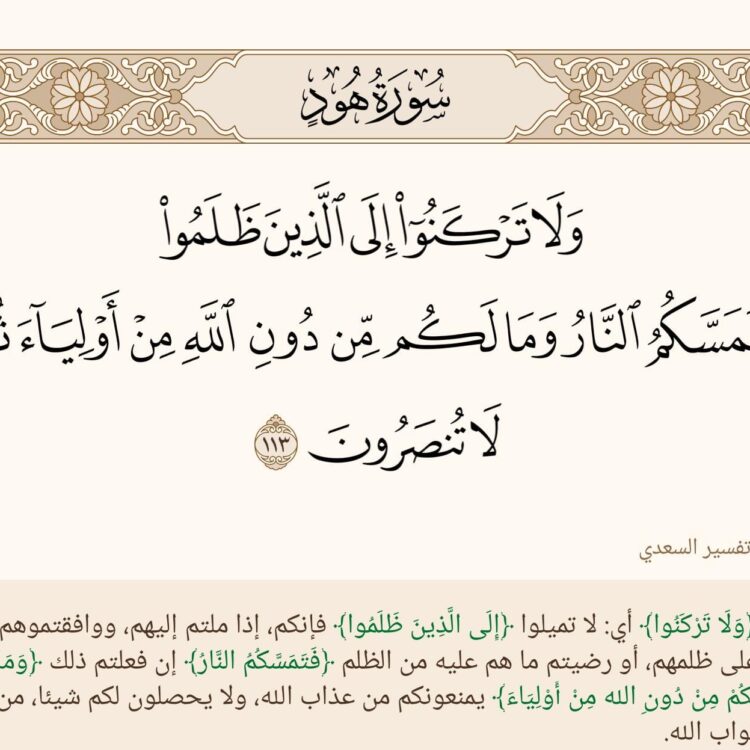 سُورَةُ هُودٍ
وَلَا تَرْكَنُوٓا۟ إِلَى ٱلَّذِينَ ظَلَمُوا۟
ٱلنَّارُ وَمَا لَكُم مِّن دُونِ ٱللَّهِ مِنْ أَوْلِيَآءَ
لَا تُنصَرُونَ ١١٣
تفسير السعدي
{وَلَا تَرْكَنُوا} أي: لا تميلوا {إِلَى الَّذِينَ ظَلَمُوا} فإنكم، إذا ملتم إليهم، ووافقتموهم
على ظلمهم، أو رضيتم ما هم عليه من الظلم {فَتَمَسَّكُمُ النَّارُ} إن فعلتم ذلك {وَمَا
لَكُمْ مِنْ دُونِ الله مِنْ أَوْلِيَاءَ} يمنعونكم من عذاب الله، ولا يحصلون لكم شيئا، من
ثواب الله.